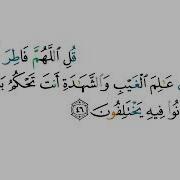 قُلِ ٱللَّهُمَّ فَاطِرَ
عَـٰلِمَ ٱلْغَيْبِ وَٱلشَّهَـٰدَةِ أَنتَ تَحْكُمُ
فِيهِ يَخْتَلِفُونَ ٤٦